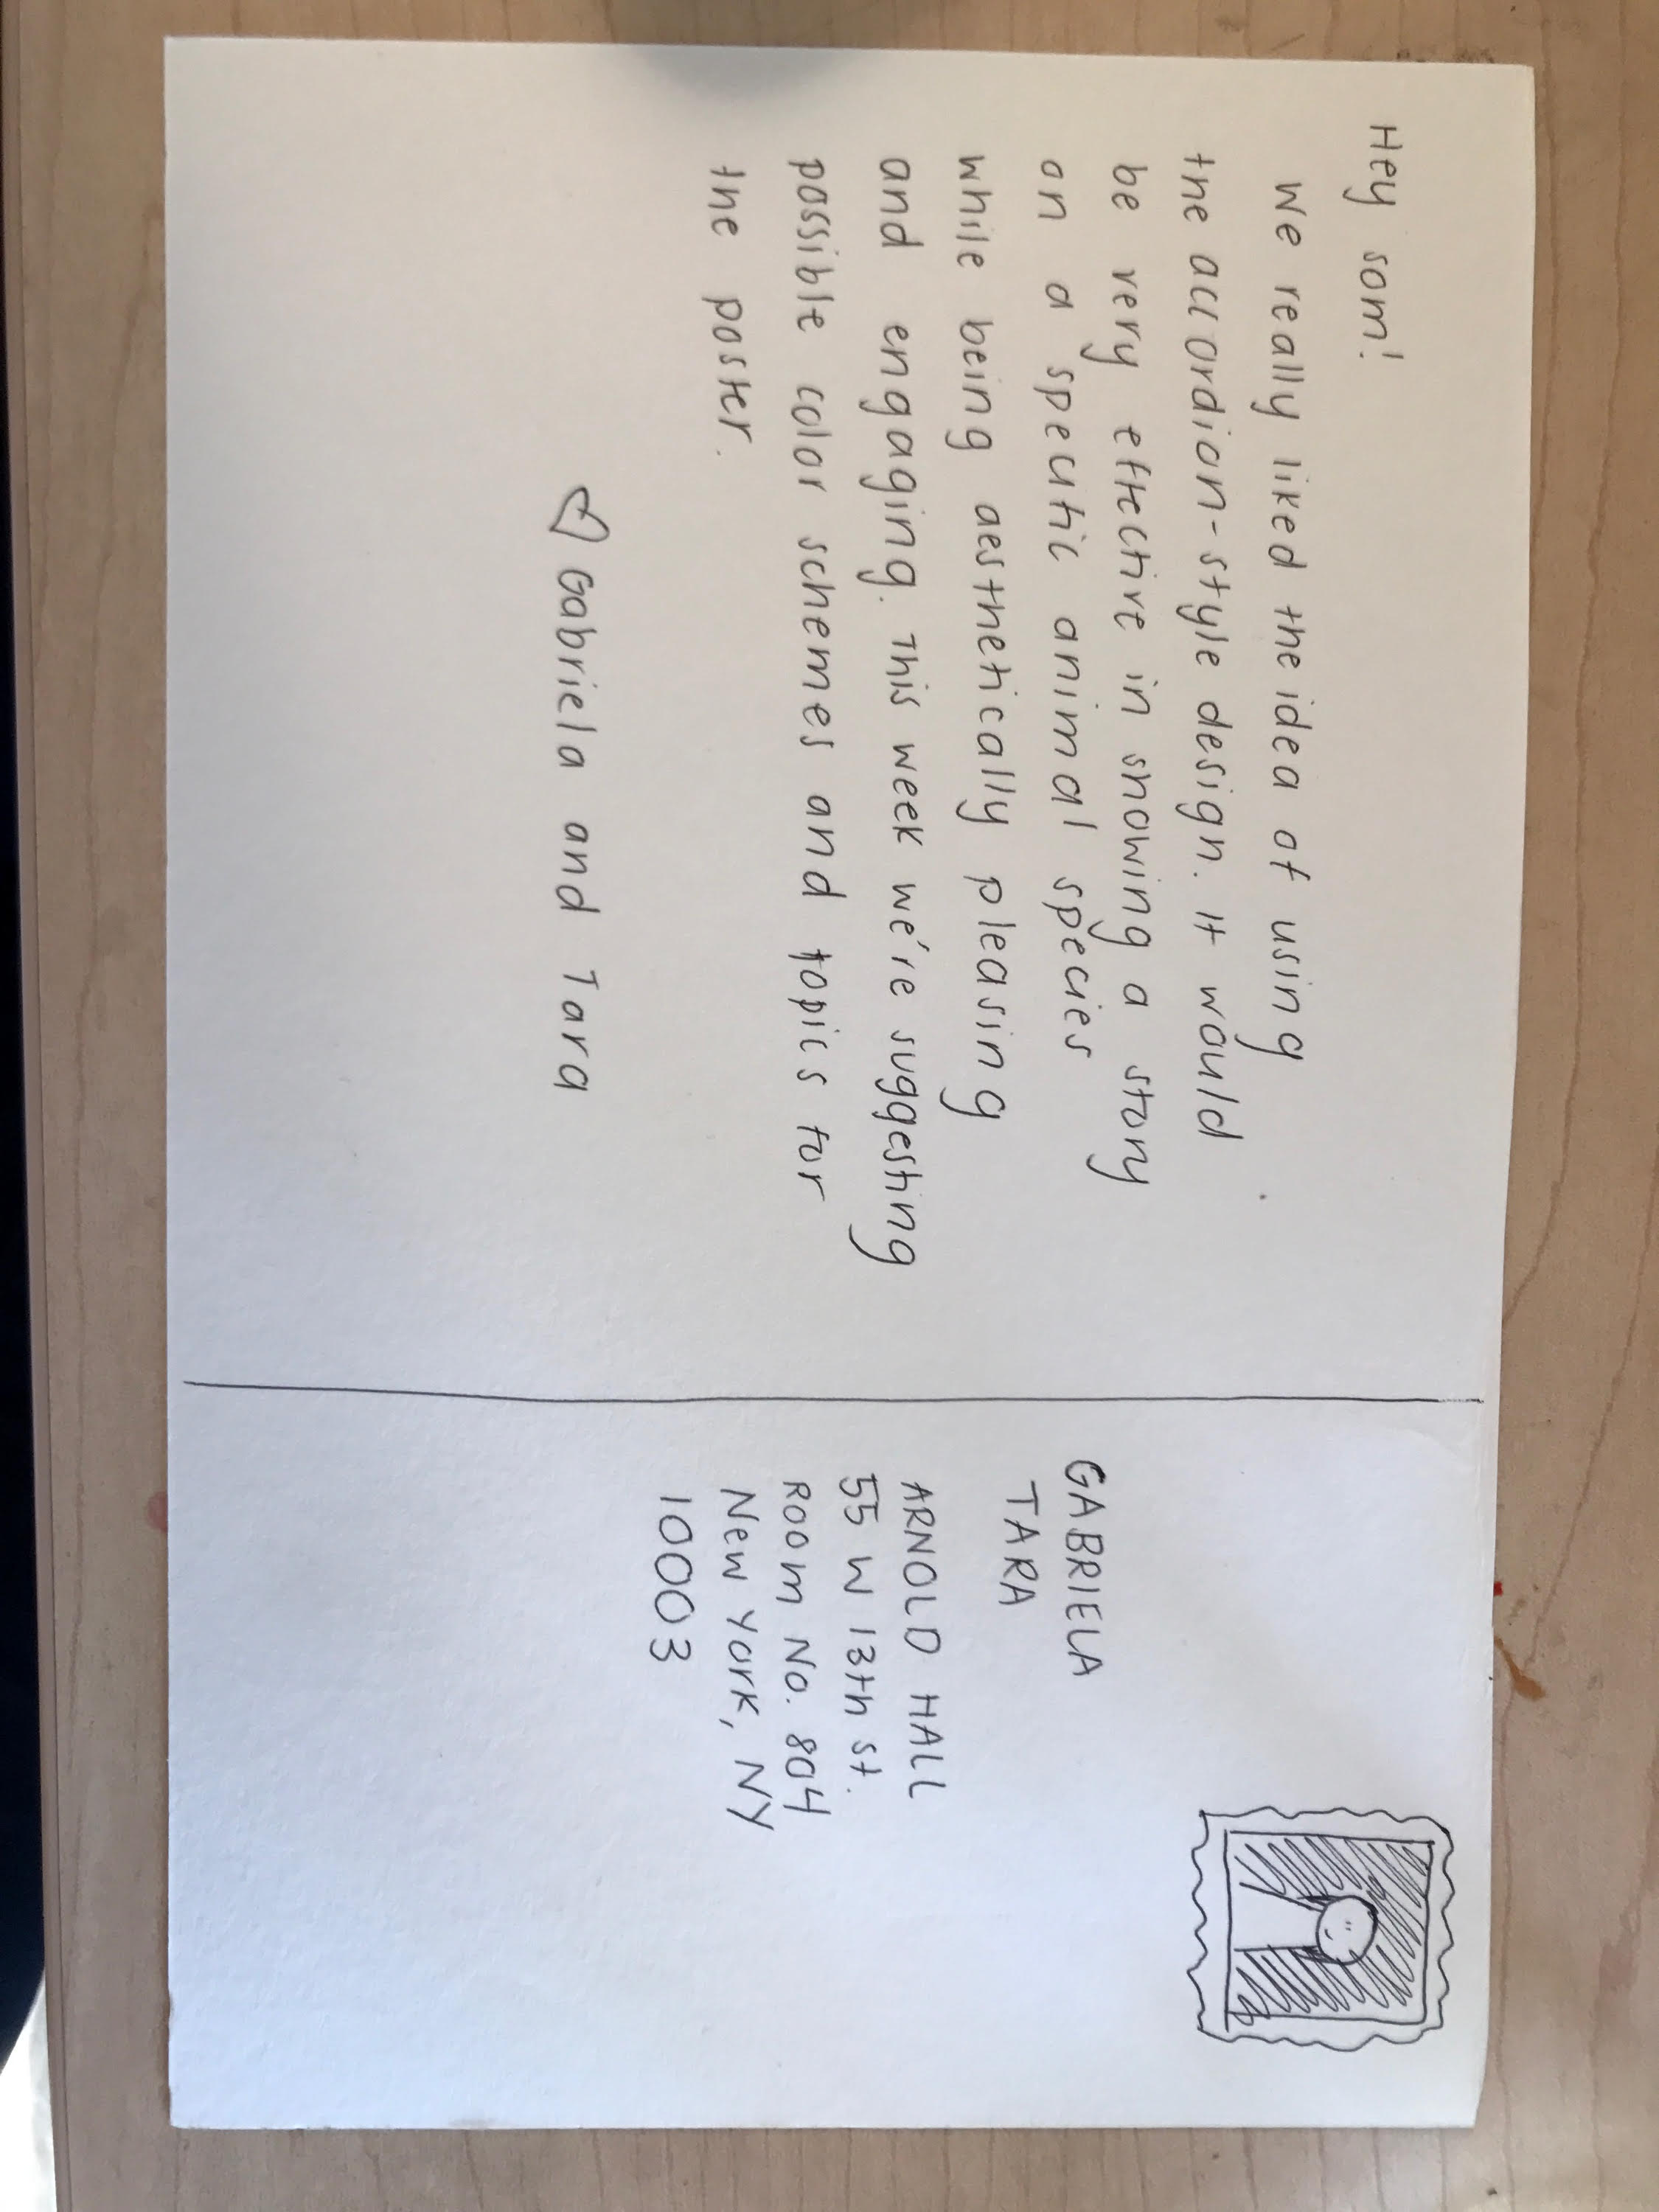 Hey som!
We really liked the idea of using
the accordion-style design. It would
be very effective in showing a story
on a specific animal species
while being aesthetically pleasing
and engaging. This week we're suggesting
possible color schemes and topics for
the poster.
♡ Gabriela and Tara
GABRIELA
TARA
ARNOLD HALL
55 W 13th st.
ROOM NO. 804
New York, NY
10003